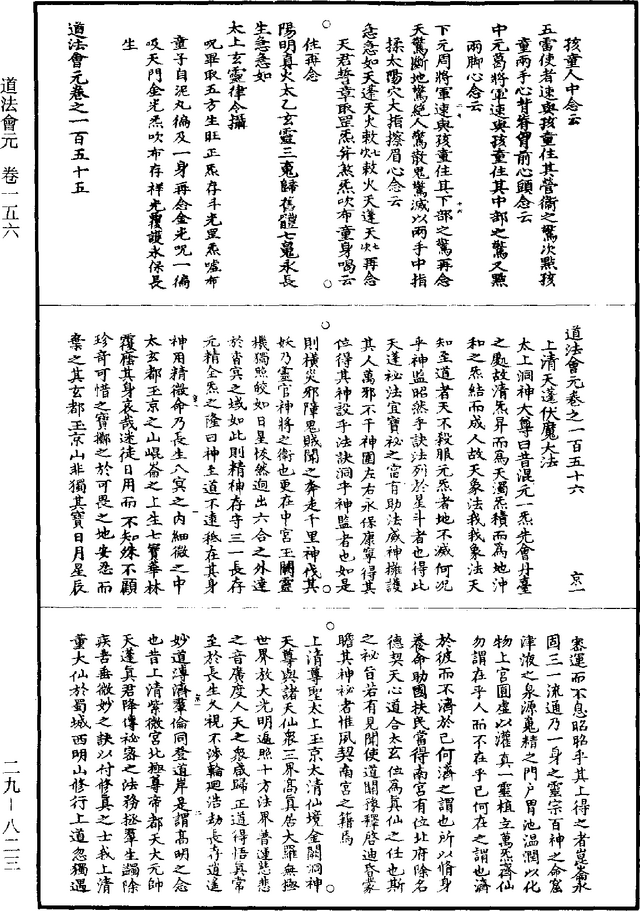 道法會元　卷一五六
二九—八二三
孩童人中念云
五雷使者速與孩童住其營衛之驚次點孩
童兩手心背脊胷前心頭念云
中元葛將軍速與孩童住其中部之驚又點
兩脚心念云
下元周將軍速與孩童住其下部之驚再念
天驚斷地驚絕人驚散鬼驚滅以兩手中指
揉太陽穴大指擦眉心念云
急急如天逢天火敕次敕火天逢天再念
天君誓章取罡炁并煞炁吹布童身喝云
住再念
陽明真火太乙玄靈三䰟歸舊體七䰟永長
生急急如
太上玄靈律令攝
呪畢取五方生旺正炁存斗光罡炁噓布
童子自泥丸徧及一身再念金光呪一徧
吸天門金光炁吹布存祥光覆護永保長
生
道法會元卷之一百五十五
道法會元卷之一百五十六　京一
上清天逢伏魔大法
太上洞神大尊曰昔混元一炁先會丹臺
之處故清炁昇而爲天濁炁積而爲地沖
和之炁結而成人故天象法我我象法天
知至道者天不殺服元炁者地不滅何况
乎神監昭然乎訣法列於星斗者也得此
天逢祕法宜寶祕之當有助法威神擁護
其人萬邪不干神圖左右永保康寧得其
位得其神設乎法訣洞乎神監者也如是
則橫災邪障鬼賊聞之奔走千里神伐其
妖乃靈官神將之衛也更在中宮玉闕靈
機獨照皎如日星恢然逈出六合之外達
於杳冥之域如此則精神存守三一長存
元精全炁之隆曰神主道不遠秪在其身
神用精微命乃長生八㝠之内細微之中
太玄都玉京之山崐崙之上生七寶華林
覆廕其身哀哉迷徒日用而不知殊不顧
珍奇可惜之寶擲之於可畏之地安忍而
棄之其玄都玉京山非獨其寶日月星辰
密運而不息昭昭乎其上得之者崑崙永
固三一流通乃一身之靈宗百神之命窟
津液之泉源䰟精之門户胃池温潤以化
物上宮圓虛以灌真一靈植立萬炁齊仙
勿謂在乎人而不在乎已何在之謂也濟
於彼而不濟於已何濟之謂也所以脩身
養命助國扶民當得南宮有位北府除名
德契天心道合太玄位爲真仙之任也斯
之祕旨若有見聞使道開豫釋啓迪昏蒙
瞻其神祕者惟夙契南宮之籍焉
上清尊聖太上玉京太清仙境金闕洞神
天尊與諸天仙衆三界髙真居大羅無極
世界放大光明遍照十方法界普運慈悲
之音廣度人天之衆咸歸正道得悟真常
至於長生久視不涉輪迴浩劫長存逍遙
妙道溥濟羣倫同登道岸是謂髙明之念
也昔上清紫微宮北極尊帝都天大元帥
天逢真君降傳祕密之法務拯羣生蠲除
疾苦垂微妙之訣以付修真之士我上清
童大仙於蜀城西明山修行上道忽獨遇